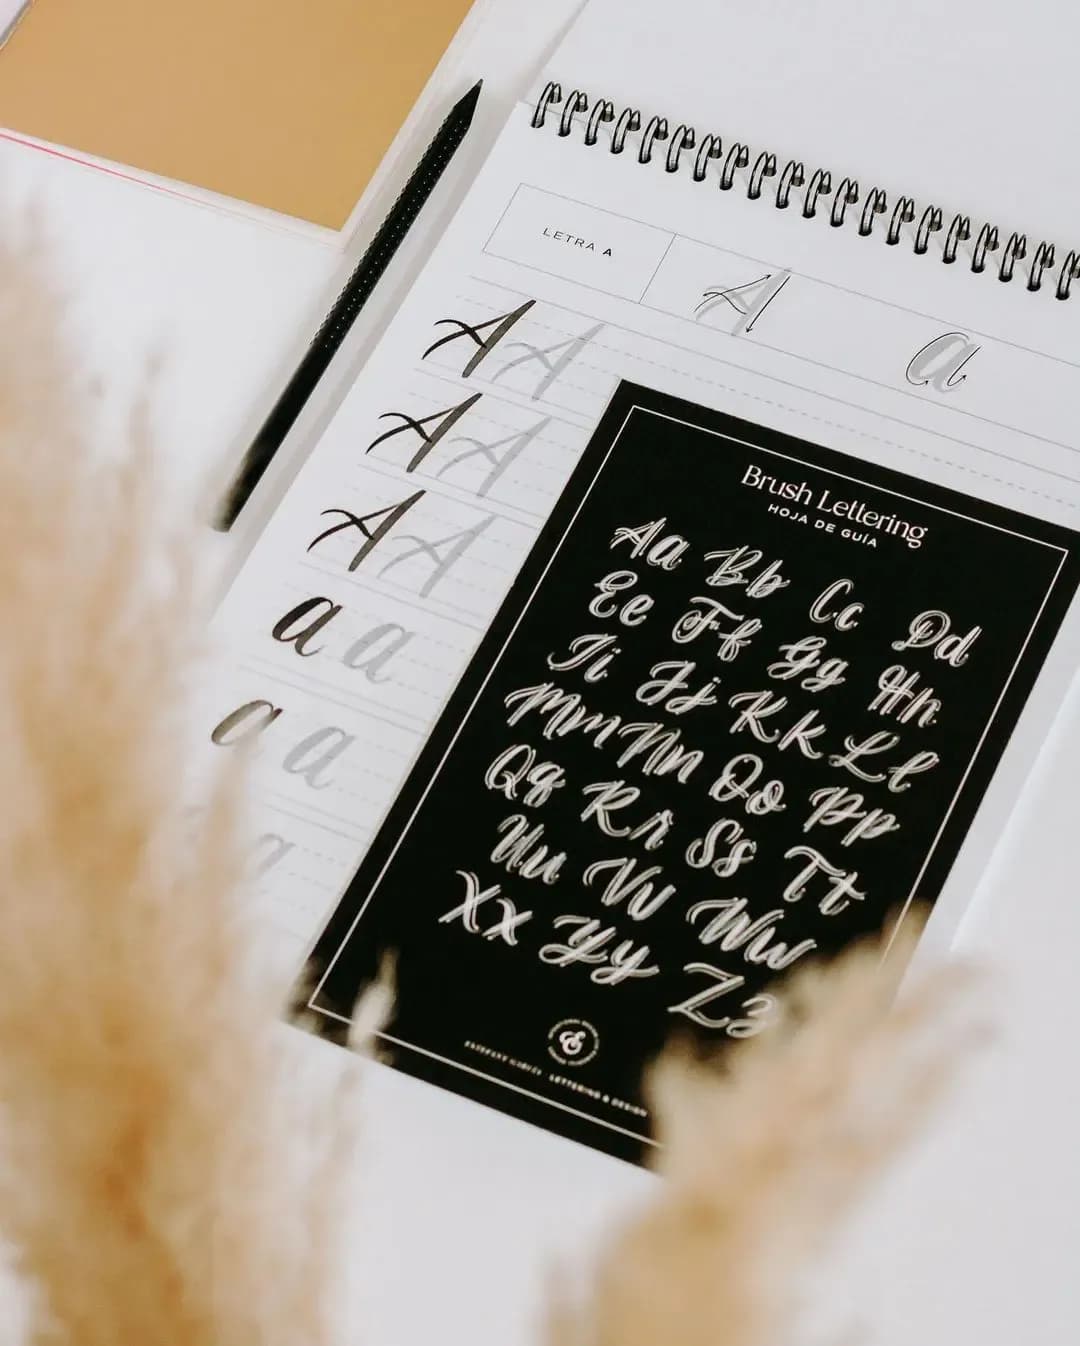 LETRA A
A a
A A
A A
A A
a a
a a
a
Brush Lettering
HOJA DE GUÍA
Aa Bb Cc Dd
Ee Ff Gg Hh
Ii Jj Kk Ll
Mm Nn Oo Pp
Qq Rr Ss Tt
Uu Vv Ww
Xx Yy Zz
LETTERING & DESIGN